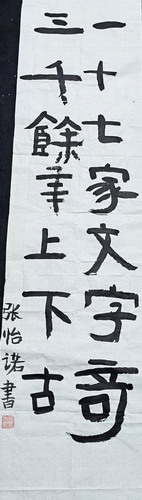 一十七家文字奇
三千餘年上下古
张怡诺書